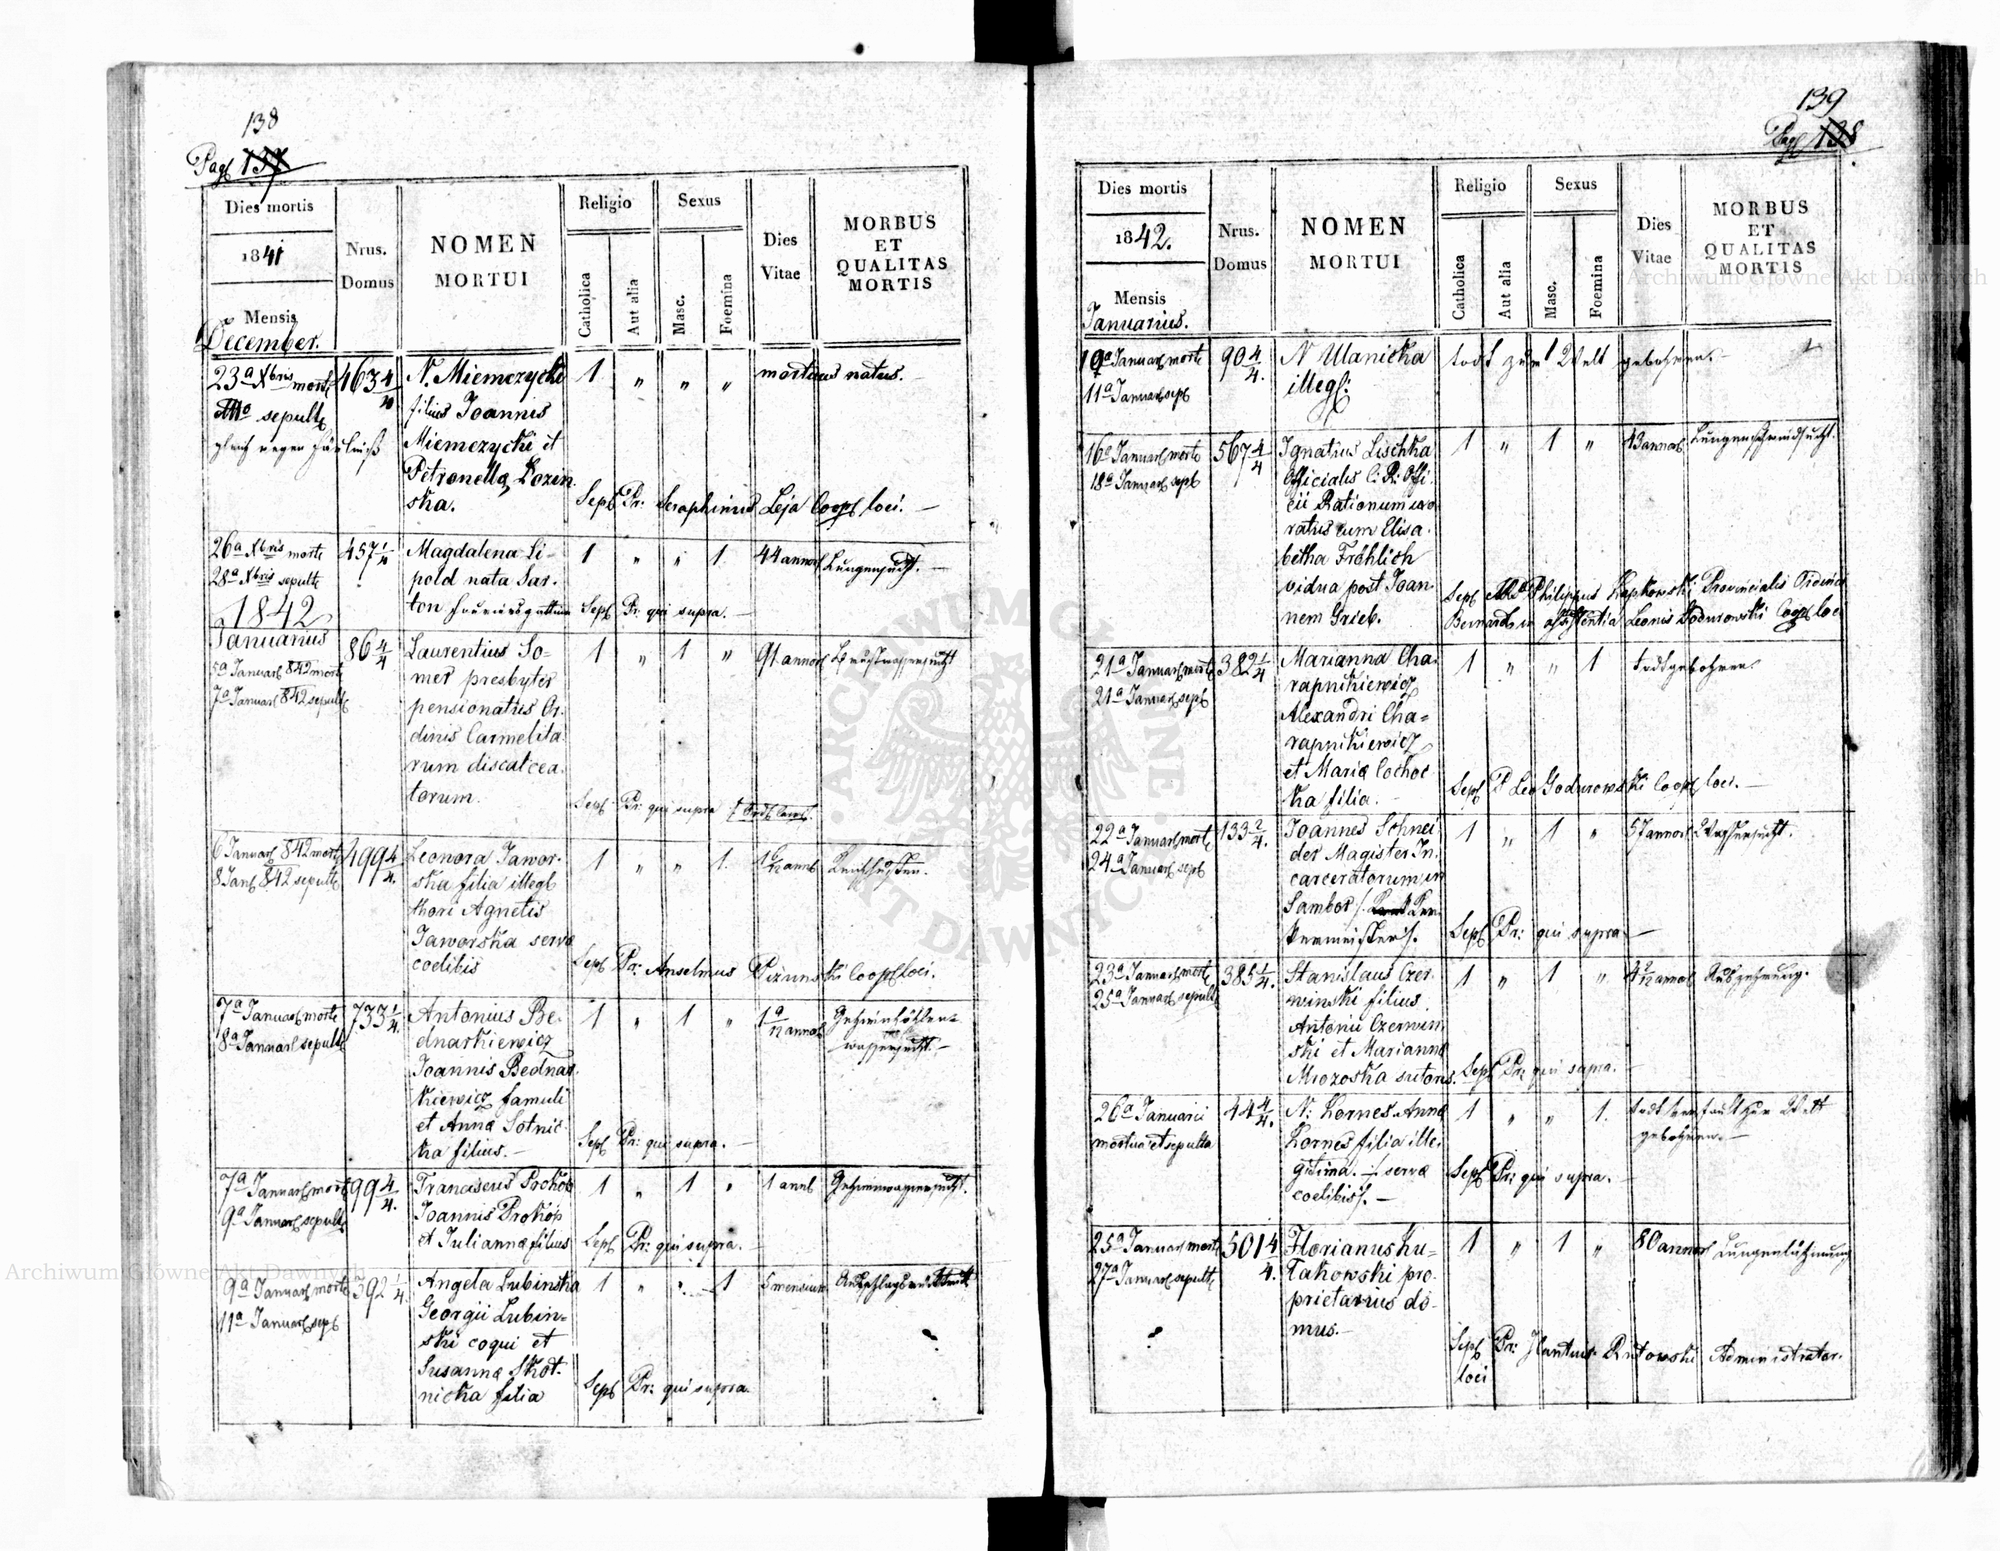 138
Pag 137
Dies mortis
1841
Mensis
December.
Nrus.
Domus
NOMEN
MORTUI
Religio
Catholica
Aut alia
Sexus
Masc.
Foemina
Dies
Vitae
MORBUS
ET
QUALITAS
MORTIS
23a Xbris mort
sepult
463 4/4
N. Miemczycki
filius Joannis
Miemczycki et
Petronella Kozin
ska.
1 " " "
mortuus natus.
Sep Pr: Seraphinus Leja Coop loci.
26a Xbris morte
28a Xbris sepulte
457 1/4
Magdalena Li-
pold nata Sar-
ton
1 " " 1
44 annor
Lungensucht.
Sep Pr: qui supra.
1842
Januarius
5a Januar 842 mort
7a Januar 842 sepult
86 4/4
Laurentius So-
mer presbyter
pensionatus Or-
dinis Carmelita
rum discalcea-
torum.
1 " 1 "
91 annor
Brustwassersucht
Sep Pr: qui supra
6 Januar 842 mort
8 Jan 842 sepulte
499 4/4.
Leonora Jawor-
ska filia illegl
thori Agnetis
Jaworska serva
coelibis
1 " " 1.
Keichhusten.
Sep Pr: Anselmus ki Coop loci.
7a Januar morte
8a Januar sepult
733 1/4.
Antonius Be-
dnarkiewicz
Joannis Bednar
kiewicz famuli
et Anna Sotnic
ka filius.
1 " 1 "
annor
Gehirnhöhlen-
wassersucht.
Sep Pr: qui supra.
7a Januar mort
9a Januar sepult
99 4/4.
Franciscus Prokop
Joannis Prokop
et Julianna filius
1 " 1 "
1 ann
Gehirnwassersucht.
Sep Pr: qui supra.
9a Januar morte
11a Januar sep
392 1/4
Angela Lubinska
Georgii Lubin-
ski coqui et
Susanna Skot-
nicka filia
1 " " 1
5 mensium
Sep Pr: qui supra.
139
Pag 138
Dies mortis
1842.
Mensis
Januarius.
Nrus.
Domus
NOMEN
MORTUI
Religio
Catholica
Aut alia
Sexus
Masc.
Foemina
Dies
Vitae
MORBUS
ET
QUALITAS
MORTIS
Januar morte
11a Januar sep
90 4/4.
N Ulanicka
illeg:
todt zur Welt gebohren.
16a Januar morte
18a Januar sep
567 4/4
Ignatius Lischka
Officialis C: R: Offi-
cii Rationum uxo
ratus cum Elisa-
betha Fröhlich
vidua post Joan
nem Grieb.
1 " 1 "
43 annor
Lungenschwindsucht.
Sep Philippus Provincialis Ordinis
Bernardin assistentia Leonis Godurowski Coop loci
21a Januar morte
21a Januar sep
382 1/4
Marianna Cha-
rapnikiewicz
Alexandri Cha-
rapnikiewicz
et Maria Cochoc
ka filia.
1 " " 1
todtgebohren.
Sep P Leo Godurowski Coop loci.
22a Januar mort
24a Januar sep
133 2/4.
Joannes Schnei
der Magister In
carceratorum in
Sambor
1 " 1 "
57 annor
Wassersucht.
Sep Pr: qui supra.
23a Januar morte
25a Januar sepult
385 1/4.
Stanislaus Czer
winski filius
Antonii Czerwin
ski et Marianna
Mrozoska sutoris.
1 " 1 "
annor
Auszehrung.
Sep Pr: qui supra.
26a Januarii
mortua et sepulta
44 4/4.
N: Kornes Anna
Kornes filia ille-
gitima. serva
coelibis.
1 " " 1.
gebohren.
Sep Pr: qui supra.
25a Januar morte
27a Januar sepulte
501 4/4.
Florianus Ku-
lakowski pro-
prietarius do-
mus.
1 " 1 "
80 annor
Lungenlähmung
Sep Pr: Rutowski Administrator.
loci
Archiwum Główne Akt Dawnych
Archiwum Główne Akt Dawnych
ARCHIWUM GŁÓWNE AKT DAWNYCH